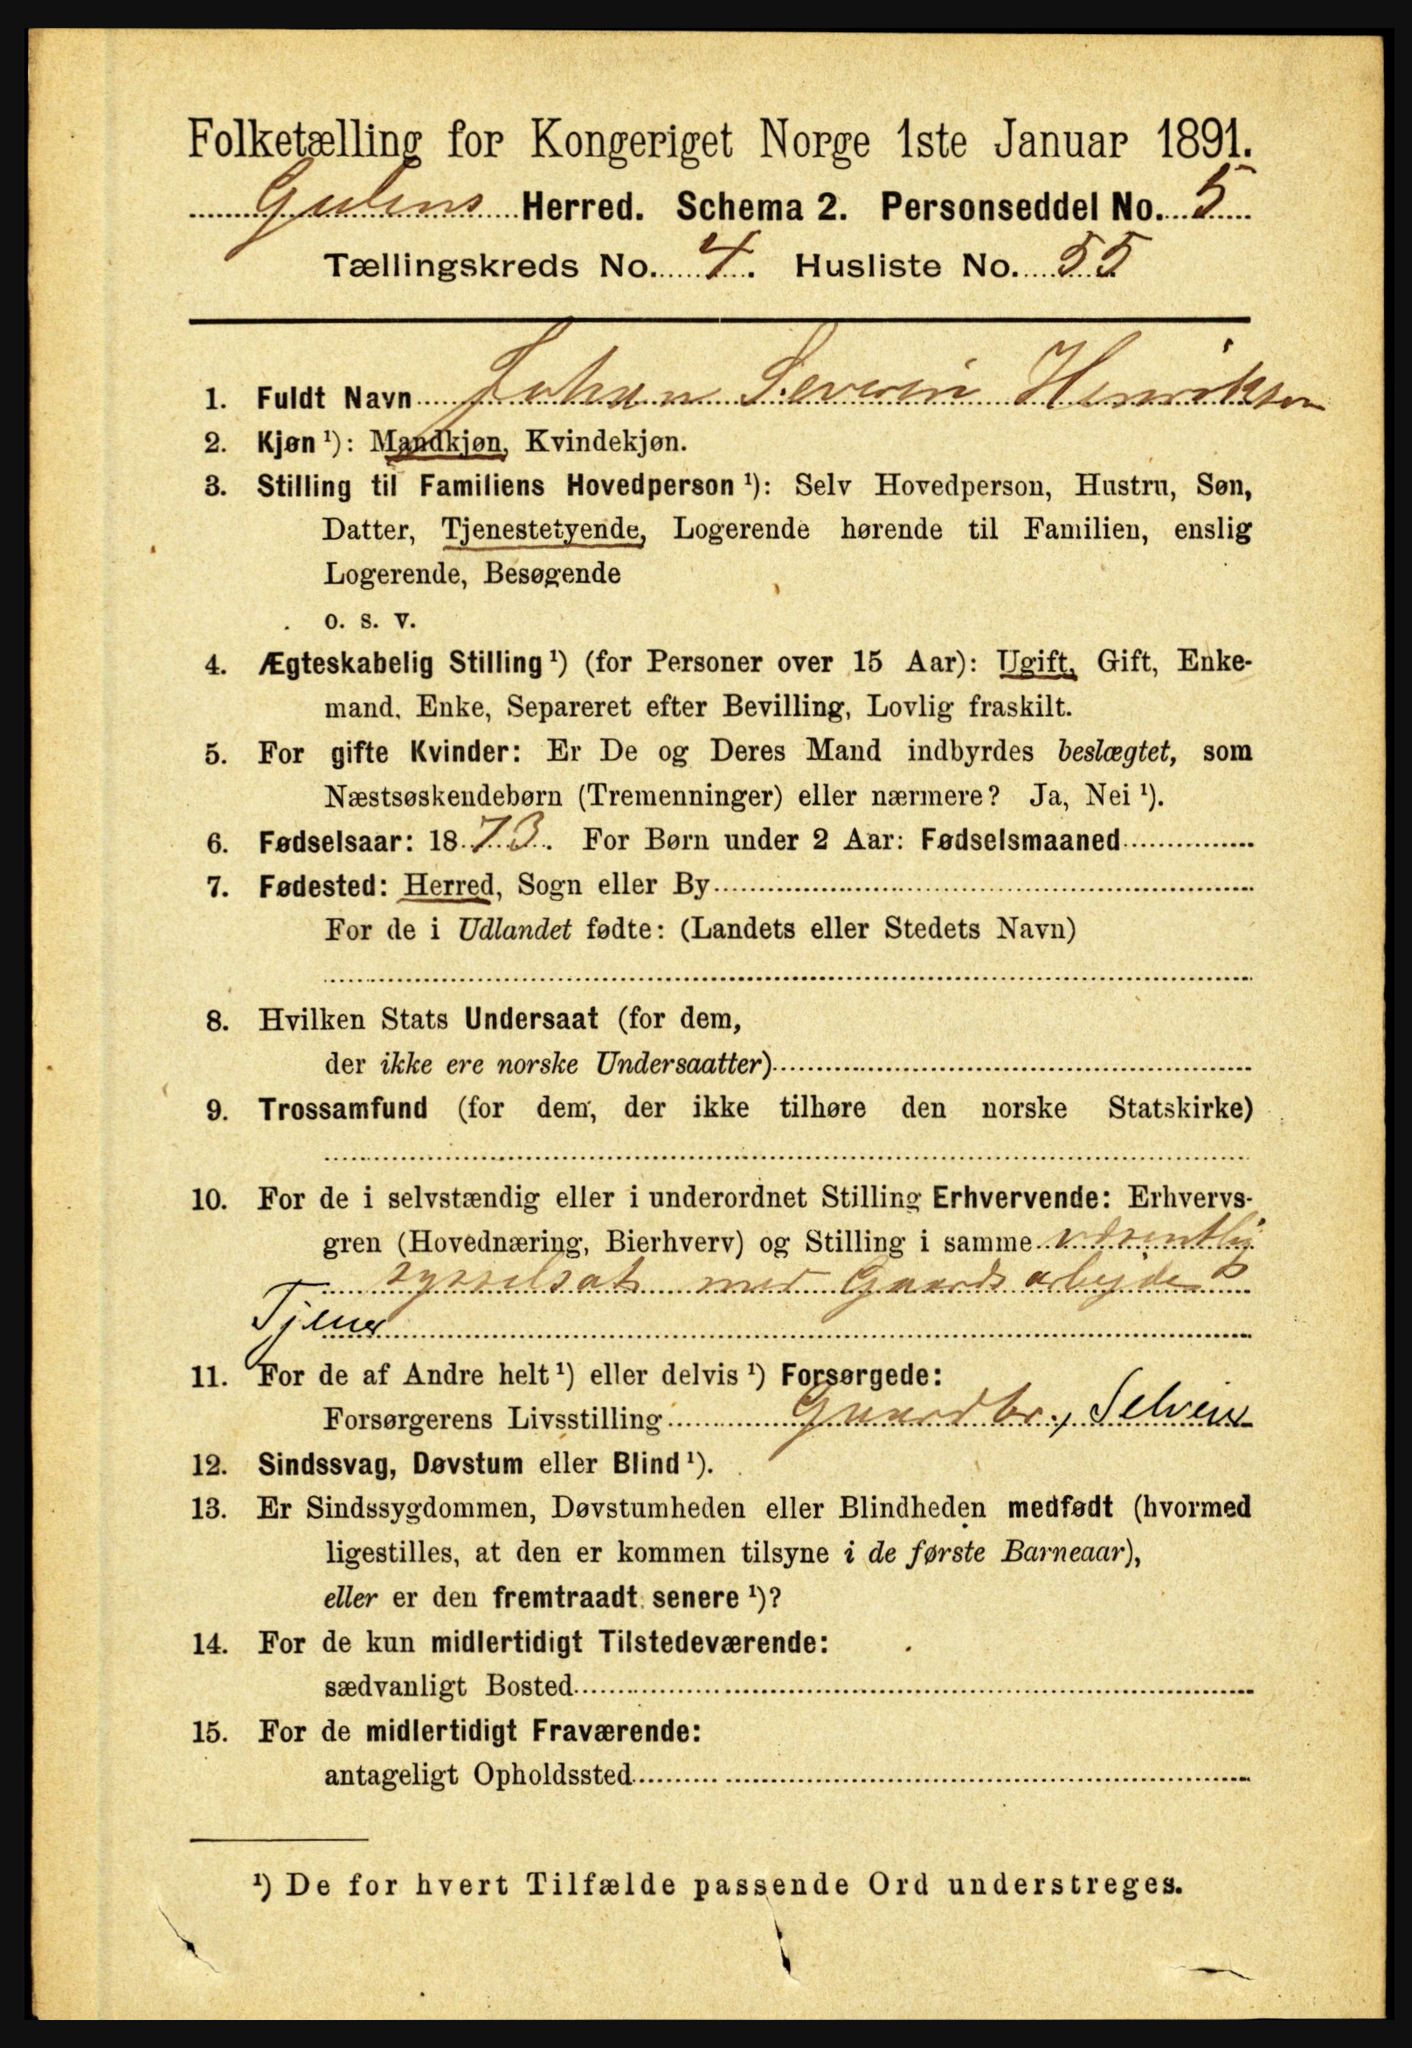 Folketælling for Kongeriget Norge 1ste Januar 1891.
Gulens Herred. Schema 2. Personseddel No. 5
Tællingskreds No. 4. Husliste No. 55
1. Fuldt Navn Johan Severin Henriksen
2. Kjøn ¹): Mandkjøn, Kvindekjøn.
3. Stilling til Familiens Hovedperson ¹): Selv Hovedperson, Hustru, Søn,
Datter, Tjenestetyende, Logerende hørende til Familien, enslig
Logerende, Besøgende
o. s. v.
4. Ægteskabelig Stilling ¹) (for Personer over 15 Aar): Ugift, Gift, Enke-
mand, Enke, Separeret efter Bevilling, Lovlig fraskilt.
5. For gifte Kvinder: Er De og Deres Mand indbyrdes beslægtet, som
Næstsøskendebørn (Tremenninger) eller nærmere? Ja, Nei ¹).
6. Fødselsaar: 1873. For Børn under 2 Aar: Fødselsmaaned
7. Fødested: Herred, Sogn eller By
For de i Udlandet fødte: (Landets eller Stedets Navn)
8. Hvilken Stats Undersaat (for dem,
der ikke ere norske Undersaatter)
9. Trossamfund (for dem, der ikke tilhøre den norske Statskirke)
10. For de i selvstændig eller i underordnet Stilling Erhvervende: Erhvervs-
gren (Hovednæring, Bierhverv) og Stilling i samme væsentlig
sysselsat med Gaardsarbyde
Tjener
11. For de af Andre helt ¹) eller delvis ¹) Forsørgede:
Forsørgerens Livsstilling Gaardbr., Selveier
12. Sindssvag, Døvstum eller Blind ¹).
13. Er Sindssygdommen, Døvstumheden eller Blindheden medfødt (hvormed
ligestilles, at den er kommen tilsyne i de første Barneaar),
eller er den fremtraadt senere ¹)?
14. For de kun midlertidigt Tilstedeværende:
sædvanligt Bosted
15. For de midlertidigt Fraværende:
antageligt Opholdssted
¹) De for hvert Tilfælde passende Ord understreges.